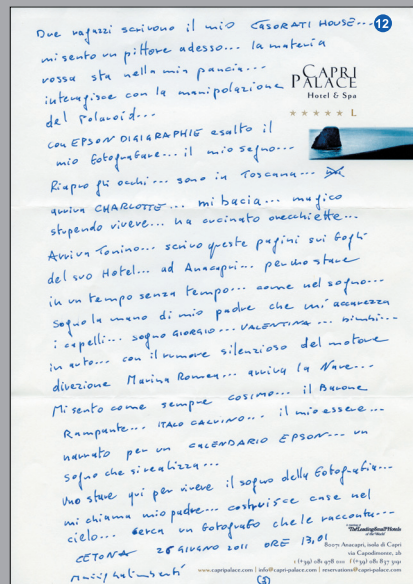 12
Due ragazzi scrivono il mio CASORATI HOUSE...
mi sento un pittore adesso... la materia
rossa sta nella mia pancia...
CAPRI
PALACE
Hotel & Spa
L
interagisce con la manipolazione
del Polaroid...
con EPSON DIGIGRAPHIE esalto il
mio fotografare... il mio segno...
Riapro gli occhi... sono in Toscana...
arriva CHARLOTTE... mi bacia... magico
stupendo vivere... ha cucinato orecchiette...
Arriva Tonino... scrivo queste pagini sui fogli
del suo Hotel... ad Anacapri... per stare
in un tempo senza tempo... come nel sogno...
sogno la mano di mio padre che mi accarezza
i capelli... sogno GIORGIO... VALENTINA... bimbi...
in auto... con il rumore silenzioso del motore
direzione Marina Romea... arriva la Nave...
Mi sento come sempre cosimo... il Barone
Rampante... ITALO CALVINO... il mio essere...
narrato per un CALENDARIO EPSON... un
sogno che si realizza...
uno stare qui per vivere il sogno della fotografia...
mi chiama mio padre... costruisce case nel
cielo... cerca un fotografo che le racconta...
TheLeadingHotels
of the World
CETONA 26 GIUGNO 2011 ORE 13,01
80071 Anacapri, isola di Capri
via Capodimonte, 2b
t (+39) 081 978 0111 | f (+39) 081 837 3191
www.capripalace.com | info@capri-palace.com | reservations@capri-palace.com
Maurizio Galimberti
(3)